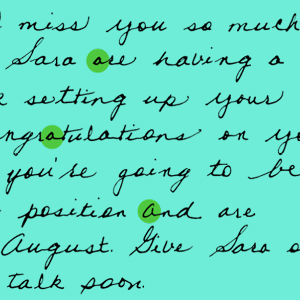 I miss you so much
Sara are having a
setting up your
ngratulations on yo
you're going to be
position and are
August. Give Sara a
talk soon.